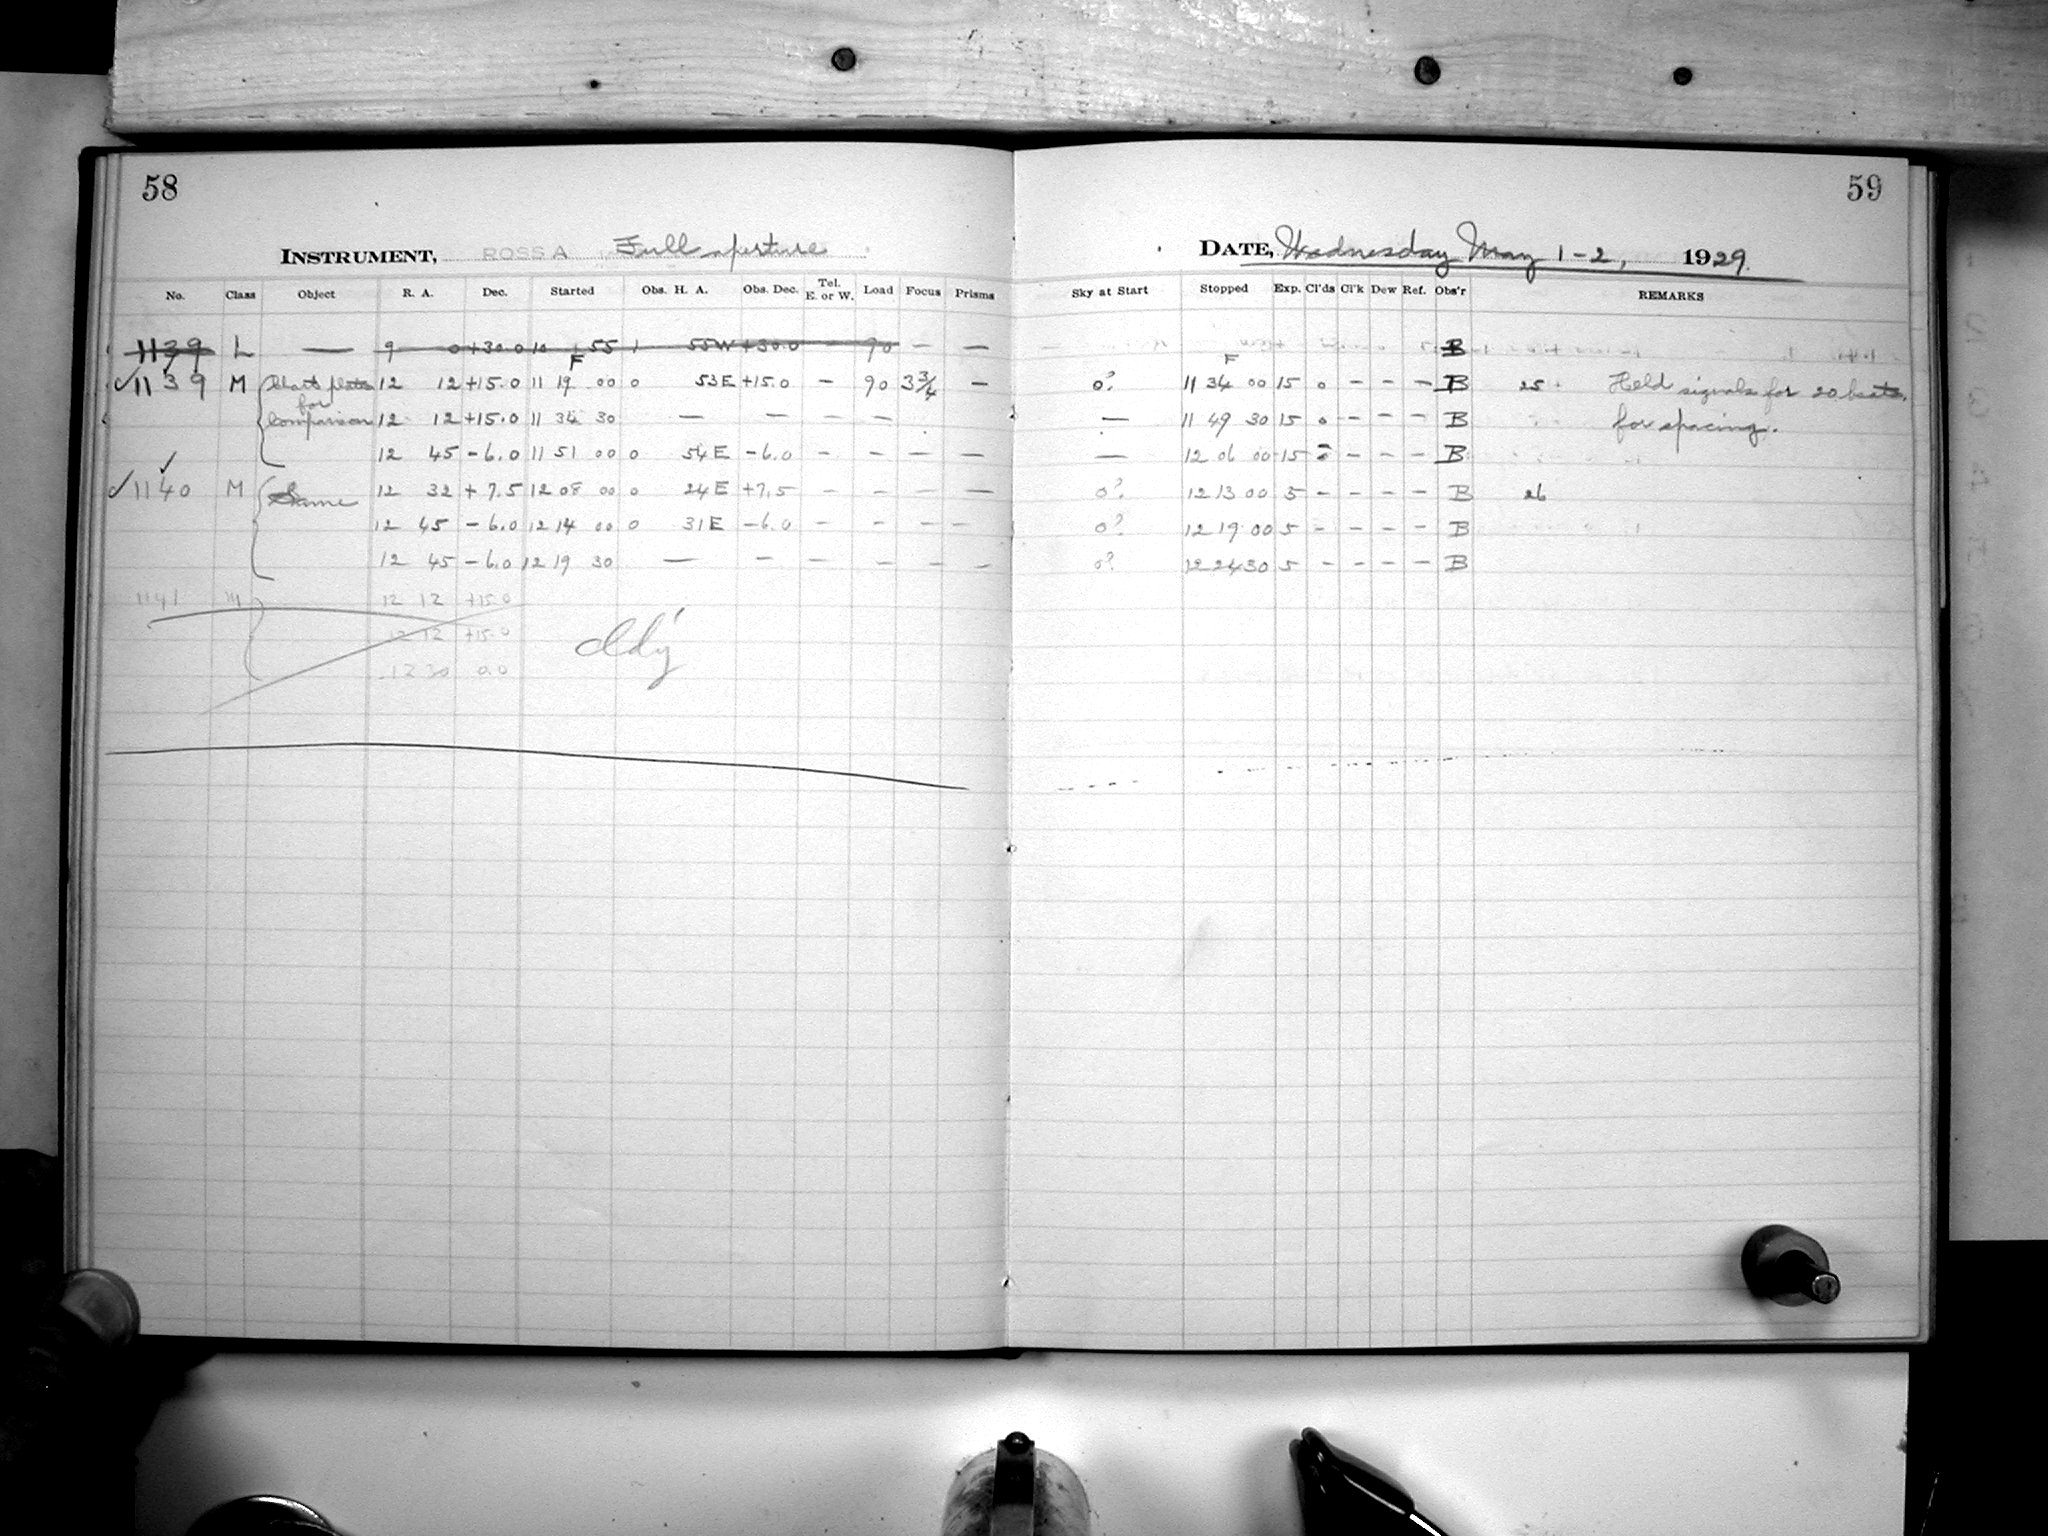 58
59
INSTRUMENT, ROSS A Full aperture
DATE, Wednesday May 1-2, 1929.
No. Class Object R. A. Dec. Started Obs. H. A. Obs. Dec. Tel. E. or W. Load Focus Prisms Sky at Start Stopped Exp. Cl'ds Cl'k Dew Ref. Obs'r REMARKS
1139 L — 9 0 +30.0 10 55 1 55W +30.0 — 90 — — B
F F
✓1139 M 12 12 +15.0 11 19 00 0 53E +15.0 — 90 3 3/4 — 0? 11 34 00 15 0 — — — B 25 Held signals for 20 beats
for
Comparison 12 12 +15.0 11 34 30 — — — — — 11 49 30 15 0 — — — B for spacing.
12 45 -6.0 11 51 00 0 54E -6.0 — — — — — 12 06 00 15 — — — B
✓1140 M Same 12 32 +7.5 12 08 00 0 24E +7.5 — — — — 0? 12 13 00 5 — — — — B 26
12 45 -6.0 12 14 00 0 31E -6.0 — — — — 0? 12 19 00 5 — — — — B
12 45 -6.0 12 19 30 — — — — — — 0? 12 24 30 5 — — — — B
1141 M 12 12 +15.0
12 12 +15.0
12 30 0.0
Cldy